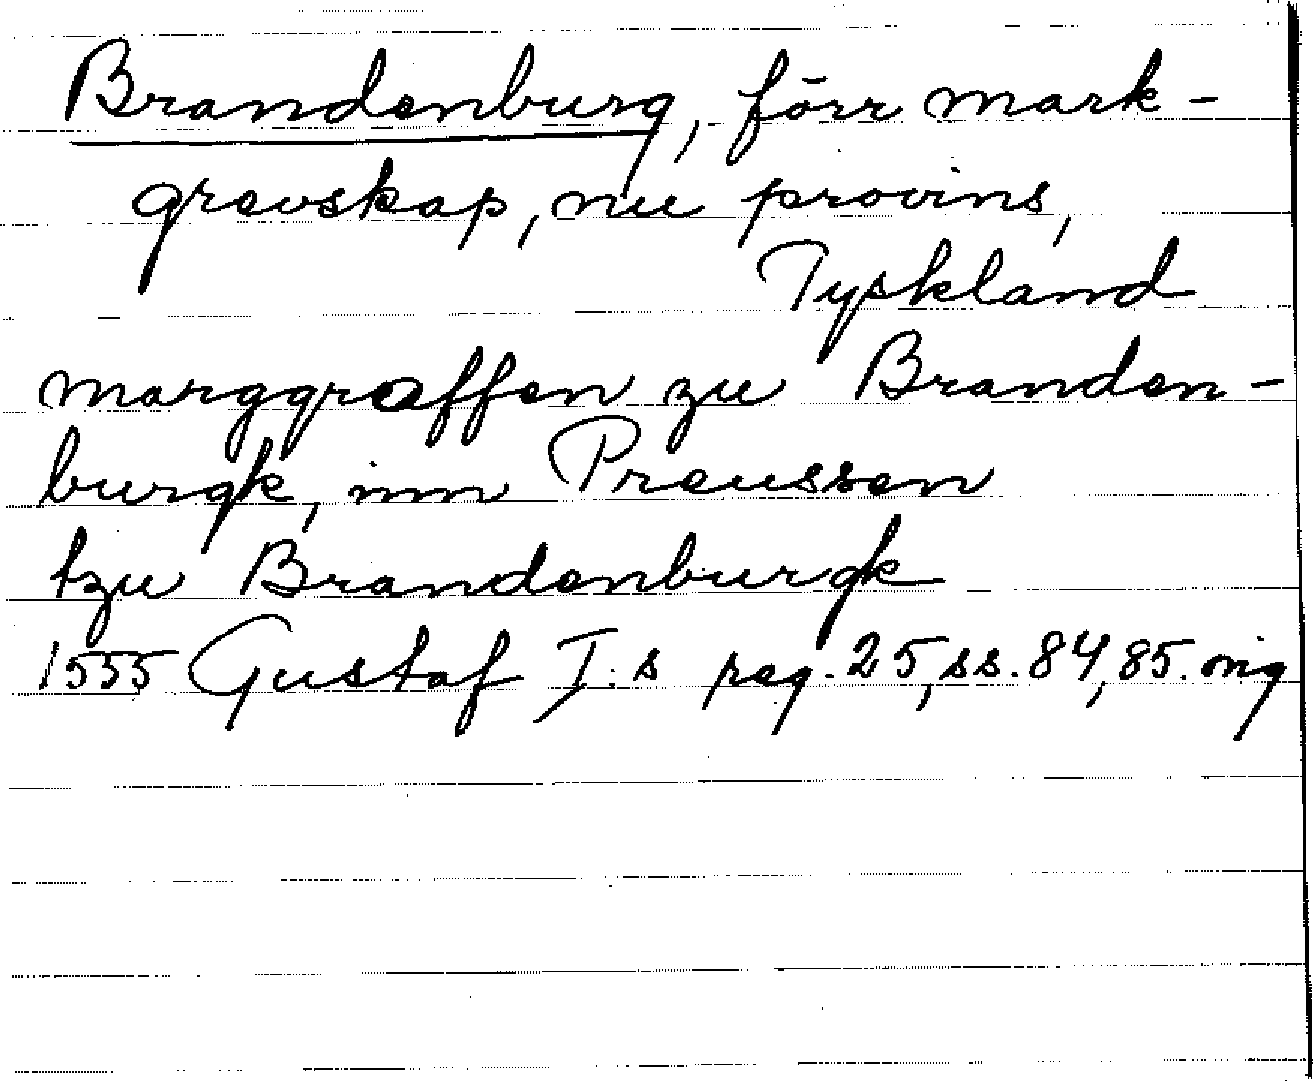 Brandenburg, förr mark-
grevskap, nu provins,
Tyskland
marggraffen zu Branden-
burgk, inn Preussen
tzu Brandenburgk
1555 Gustaf I:s reg. 25, ss. 84, 85. orig